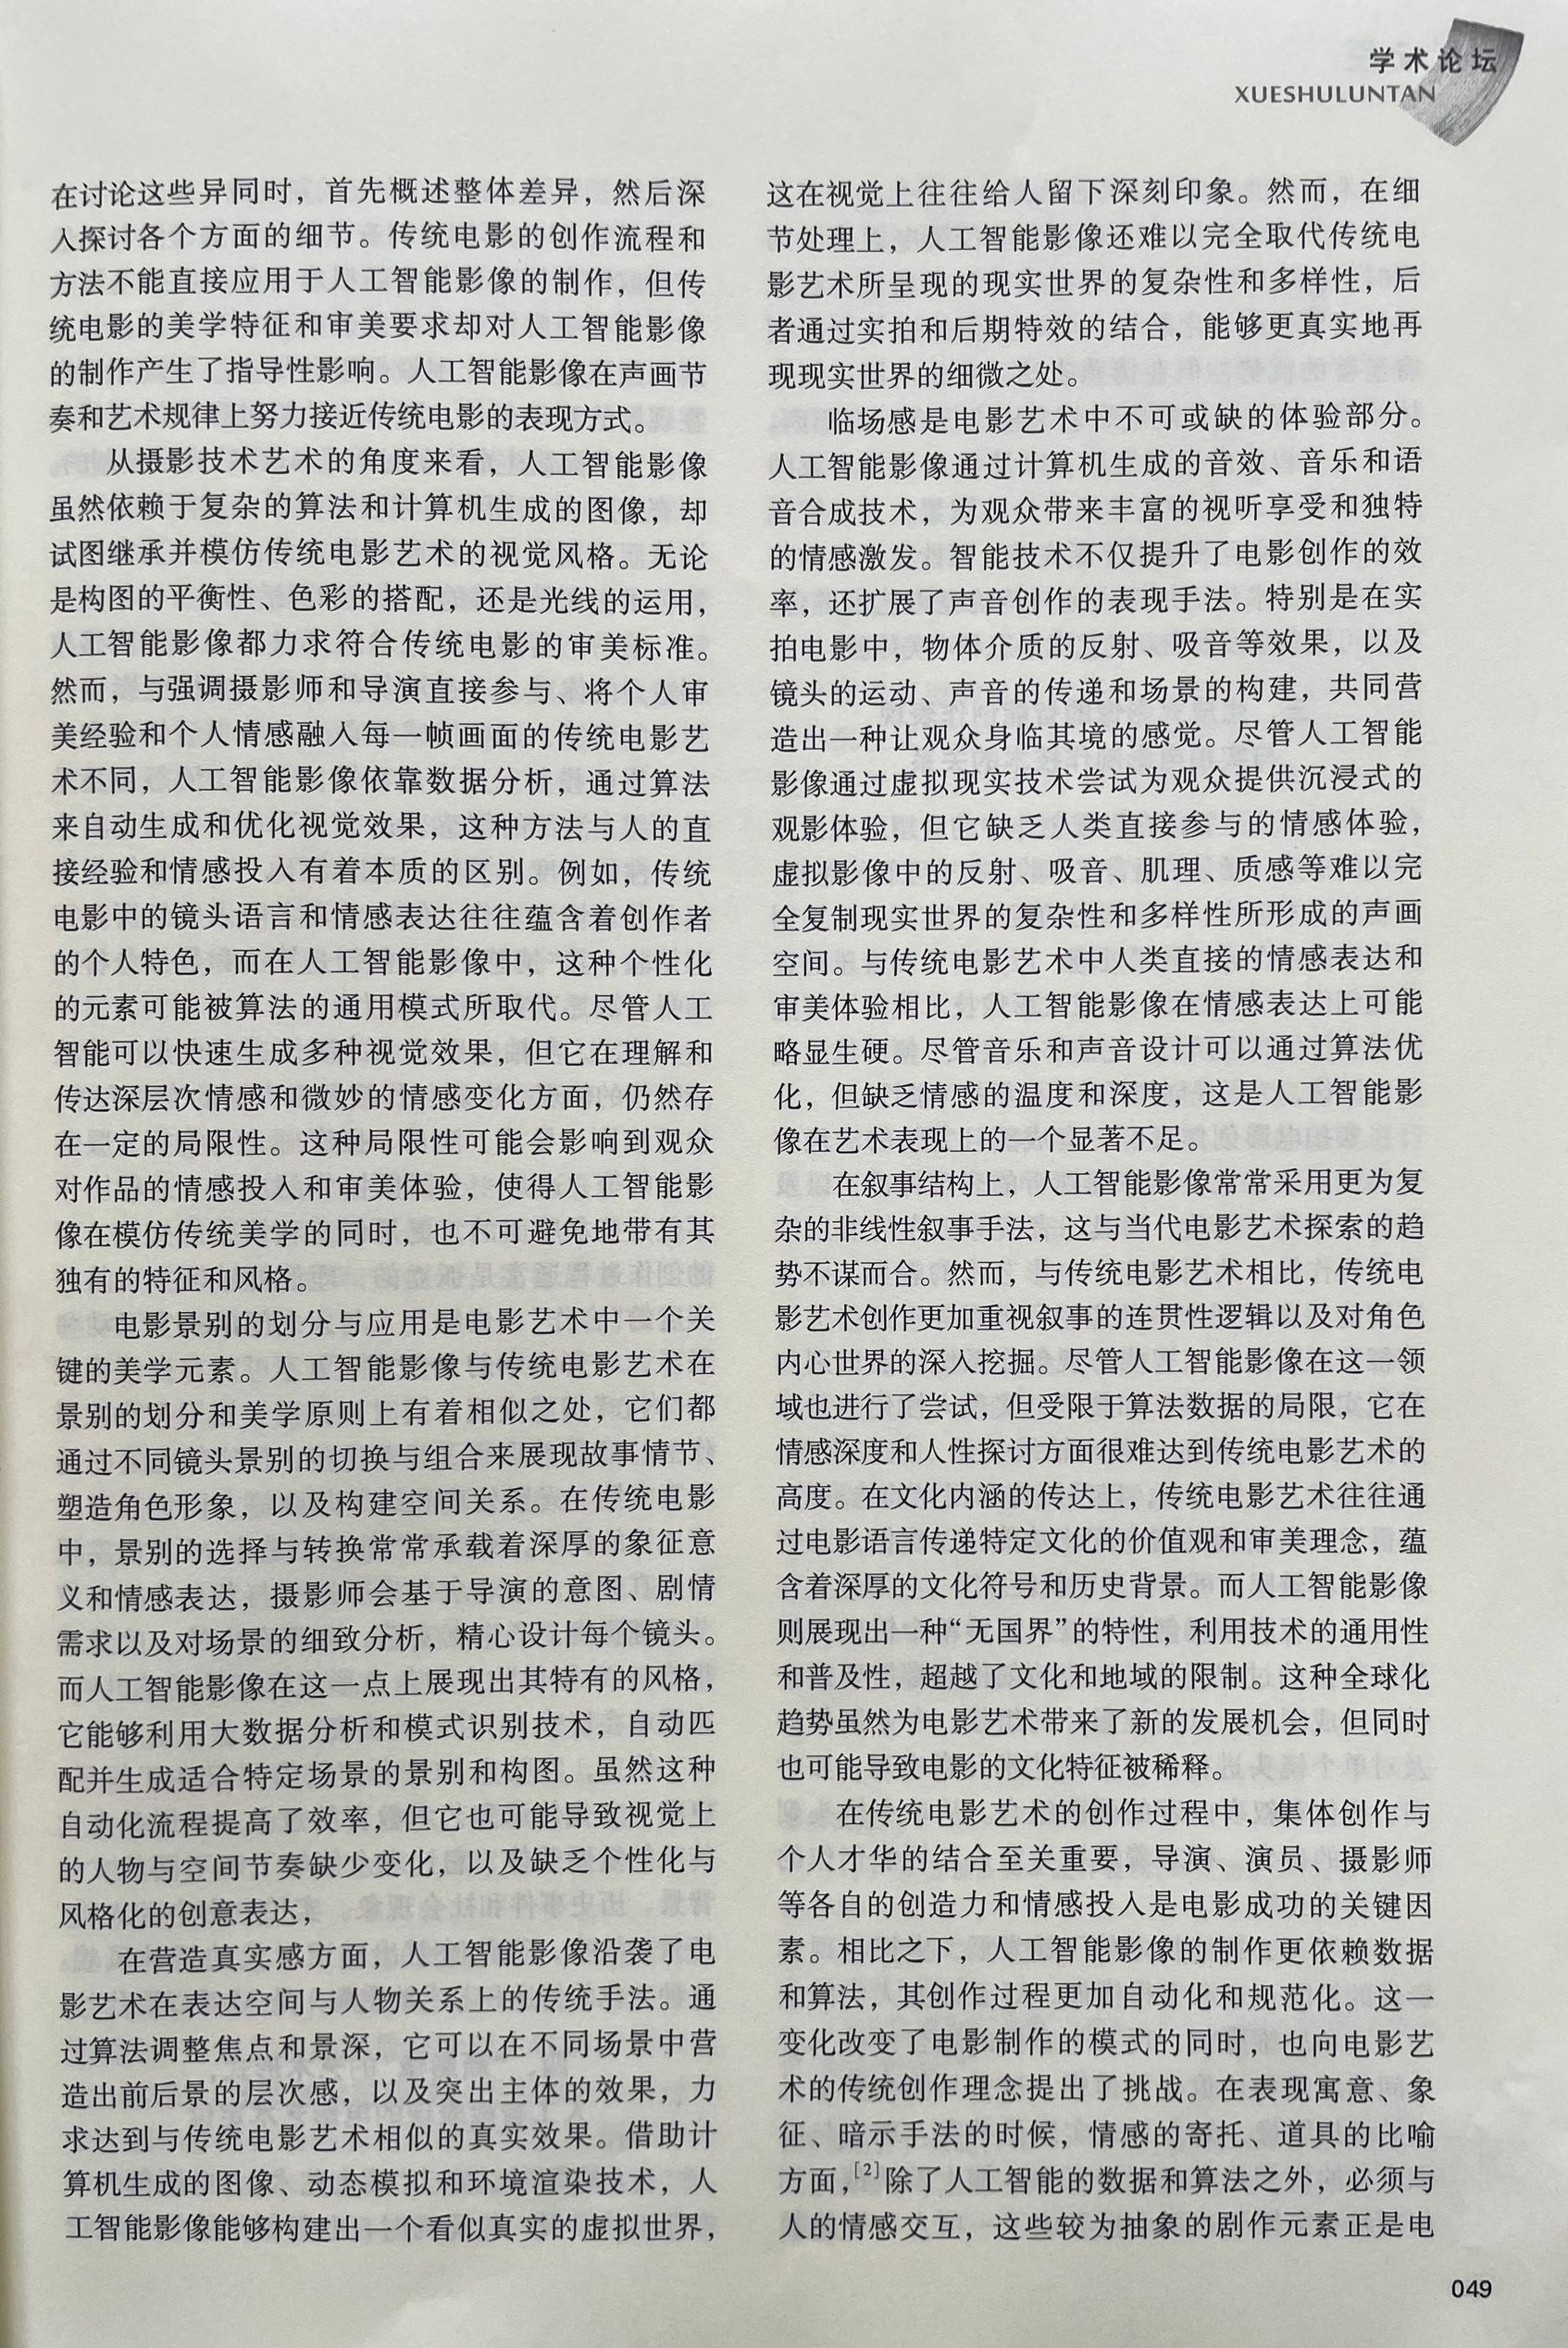 学术论坛
XUESHULUNTAN
在讨论这些异同时，首先概述整体差异，然后深
入探讨各个方面的细节。传统电影的创作流程和
方法不能直接应用于人工智能影像的制作，但传
统电影的美学特征和审美要求却对人工智能影像
的制作产生了指导性影响。人工智能影像在声画节
奏和艺术规律上努力接近传统电影的表现方式。
从摄影技术艺术的角度来看，人工智能影像
虽然依赖于复杂的算法和计算机生成的图像，却
试图继承并模仿传统电影艺术的视觉风格。无论
是构图的平衡性、色彩的搭配，还是光线的运用，
人工智能影像都力求符合传统电影的审美标准。
然而，与强调摄影师和导演直接参与、将个人审
美经验和个人情感融入每一帧画面的传统电影艺
术不同，人工智能影像依靠数据分析，通过算法
来自动生成和优化视觉效果，这种方法与人的直
接经验和情感投入有着本质的区别。例如，传统
电影中的镜头语言和情感表达往往蕴含着创作者
的个人特色，而在人工智能影像中，这种个性化
的元素可能被算法的通用模式所取代。尽管人工
智能可以快速生成多种视觉效果，但它在理解和
传达深层次情感和微妙的情感变化方面，仍然存
在一定的局限性。这种局限性可能会影响到观众
对作品的情感投入和审美体验，使得人工智能影
像在模仿传统美学的同时，也不可避免地带有其
独有的特征和风格。
电影景别的划分与应用是电影艺术中一个关
键的美学元素。人工智能影像与传统电影艺术在
景别的划分和美学原则上有着相似之处，它们都
通过不同镜头景别的切换与组合来展现故事情节、
塑造角色形象，以及构建空间关系。在传统电影
中，景别的选择与转换常常承载着深厚的象征意
义和情感表达，摄影师会基于导演的意图、剧情
需求以及对场景的细致分析，精心设计每个镜头。
而人工智能影像在这一点上展现出其特有的风格，
它能够利用大数据分析和模式识别技术，自动匹
配并生成适合特定场景的景别和构图。虽然这种
自动化流程提高了效率，但它也可能导致视觉上
的人物与空间节奏缺少变化，以及缺乏个性化与
风格化的创意表达，
在营造真实感方面，人工智能影像沿袭了电
影艺术在表达空间与人物关系上的传统手法。通
过算法调整焦点和景深，它可以在不同场景中营
造出前后景的层次感，以及突出主体的效果，力
求达到与传统电影艺术相似的真实效果。借助计
算机生成的图像、动态模拟和环境渲染技术，人
工智能影像能够构建出一个看似真实的虚拟世界，
这在视觉上往往给人留下深刻印象。然而，在细
节处理上，人工智能影像还难以完全取代传统电
影艺术所呈现的现实世界的复杂性和多样性，后
者通过实拍和后期特效的结合，能够更真实地再
现现实世界的细微之处。
临场感是电影艺术中不可或缺的体验部分。
人工智能影像通过计算机生成的音效、音乐和语
音合成技术，为观众带来丰富的视听享受和独特
的情感激发。智能技术不仅提升了电影创作的效
率，还扩展了声音创作的表现手法。特别是在实
拍电影中，物体介质的反射、吸音等效果，以及
镜头的运动、声音的传递和场景的构建，共同营
造出一种让观众身临其境的感觉。尽管人工智能
影像通过虚拟现实技术尝试为观众提供沉浸式的
观影体验，但它缺乏人类直接参与的情感体验，
虚拟影像中的反射、吸音、肌理、质感等难以完
全复制现实世界的复杂性和多样性所形成的声画
空间。与传统电影艺术中人类直接的情感表达和
审美体验相比，人工智能影像在情感表达上可能
略显生硬。尽管音乐和声音设计可以通过算法优
化，但缺乏情感的温度和深度，这是人工智能影
像在艺术表现上的一个显著不足。
在叙事结构上，人工智能影像常常采用更为复
杂的非线性叙事手法，这与当代电影艺术探索的趋
势不谋而合。然而，与传统电影艺术相比，传统电
影艺术创作更加重视叙事的连贯性逻辑以及对角色
内心世界的深入挖掘。尽管人工智能影像在这一领
域也进行了尝试，但受限于算法数据的局限，它在
情感深度和人性探讨方面很难达到传统电影艺术的
高度。在文化内涵的传达上，传统电影艺术往往通
过电影语言传递特定文化的价值观和审美理念，蕴
含着深厚的文化符号和历史背景。而人工智能影像
则展现出一种“无国界”的特性，利用技术的通用性
和普及性，超越了文化和地域的限制。这种全球化
趋势虽然为电影艺术带来了新的发展机会，但同时
也可能导致电影的文化特征被稀释。
在传统电影艺术的创作过程中，集体创作与
个人才华的结合至关重要，导演、演员、摄影师
等各自的创造力和情感投入是电影成功的关键因
素。相比之下，人工智能影像的制作更依赖数据
和算法，其创作过程更加自动化和规范化。这一
变化改变了电影制作的模式的同时，也向电影艺
术的传统创作理念提出了挑战。在表现寓意、象
征、暗示手法的时候，情感的寄托、道具的比喻
方面，[2]除了人工智能的数据和算法之外，必须与
人的情感交互，这些较为抽象的剧作元素正是电
049